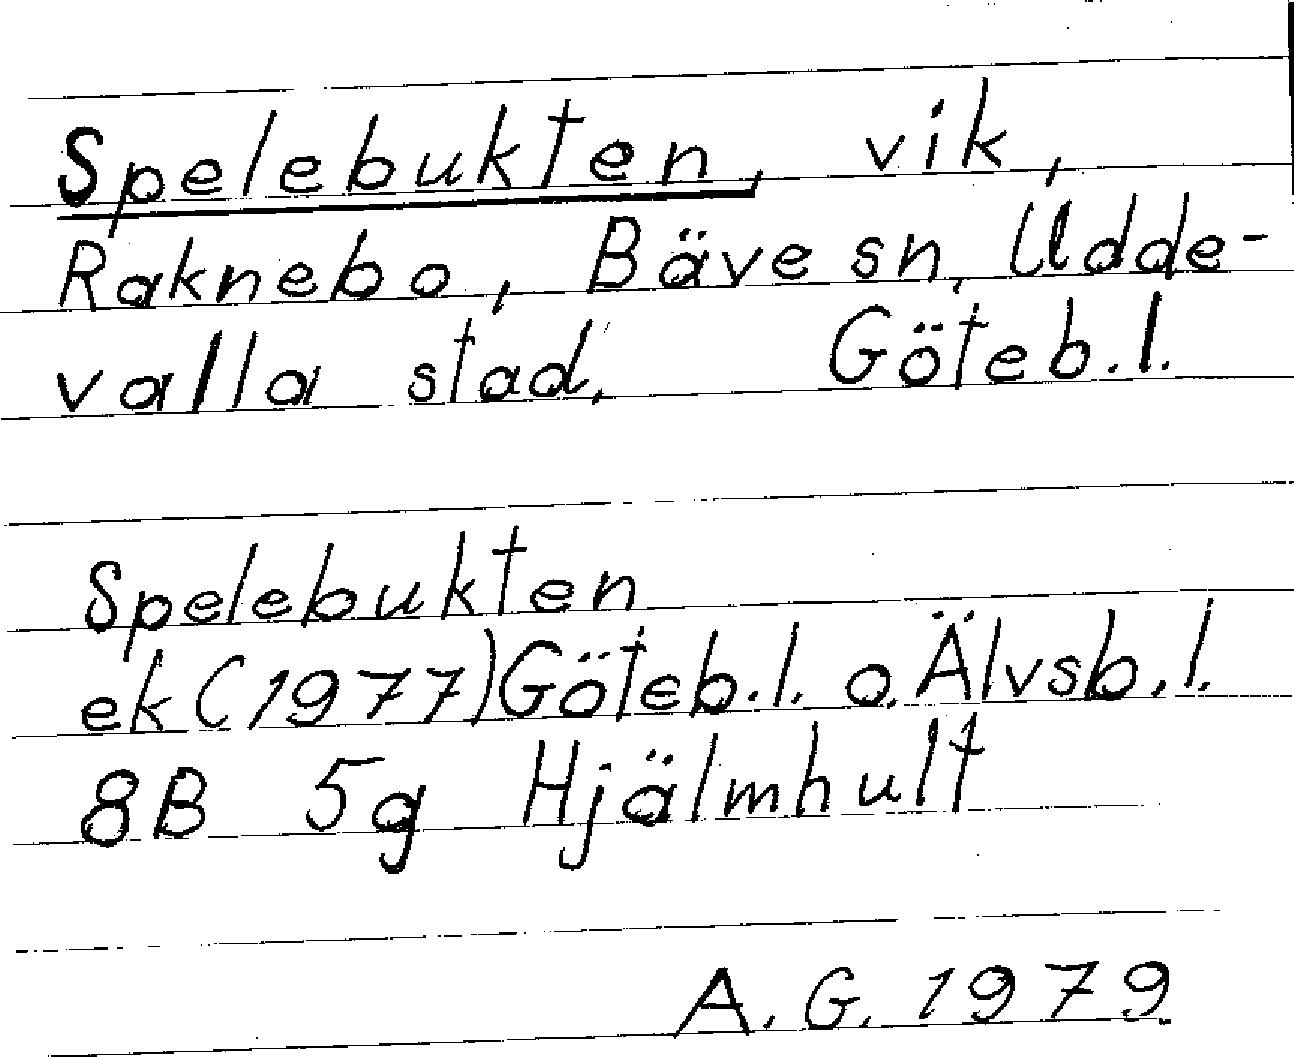 Spelebukten, vik,
Raknebo, Bäve sn, Udde-
valla stad, Göteb.l.
Spelebukten
ek (1977) Göteb.l. o. Älvsb.l.
8B 5g Hjälmhult
A.G. 1979